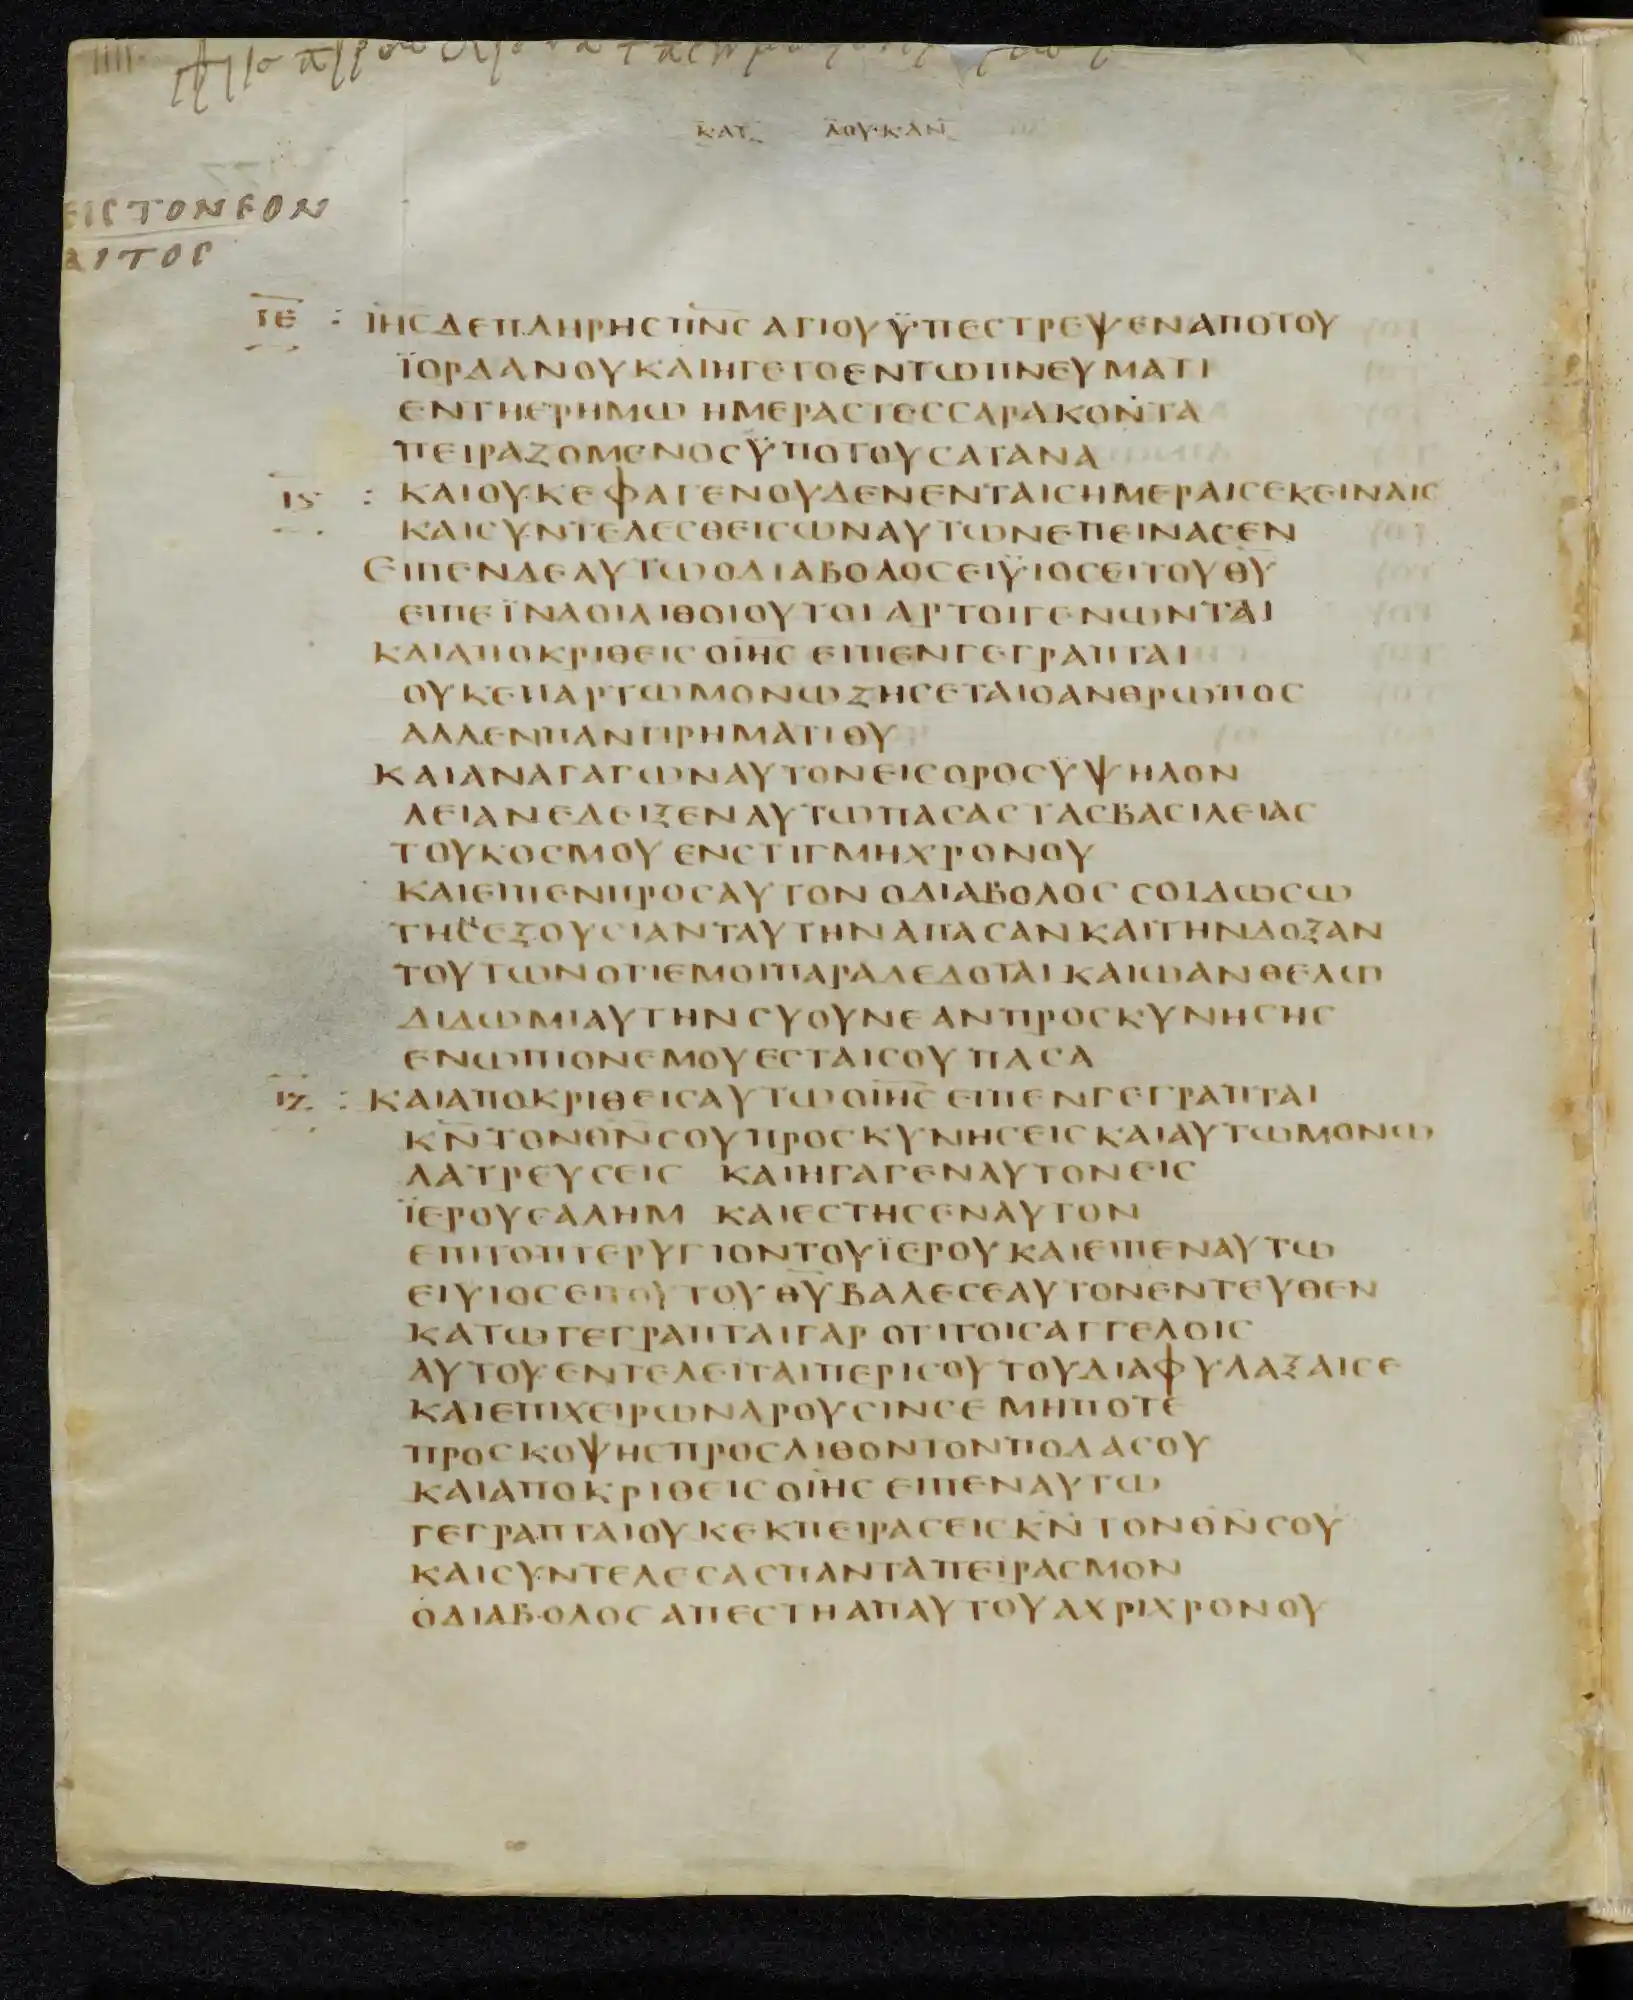 ΚΑΤ ΛΟΥΚΑΝ
ΕΙΣ ΤΟΝ ΕΟΝ
ΑΙΤΟΣ
ΙΕ : ΙΗΣΔΕΠΛΗΡΗΣΠΝΣ ΑΓΙΟΥΫΠΕΣΤΡΕΨΕΝΑΠΟΤΟΥ
ΪΟΡΔΑΝΟΥΚΑΙΗΓΕΤΟΕΝΤΩΠΝΕΥΜΑΤΙ
ΕΝΤΗΕΡΗΜΩ ΗΜΕΡΑΣΤΕΣΣΑΡΑΚΟΝΤΑ
ΠΕΙΡΑΖΟΜΕΝΟΣΫΠΟΤΟΥΣΑΤΑΝΑ
ΙϚ : ΚΑΙΟΥΚΕΦΑΓΕΝΟΥΔΕΝΕΝΤΑΙΣΗΜΕΡΑΙΣΕΚΕΙΝΑΙΣ
ΚΑΙΣΥΝΤΕΛΕΣΘΕΙΣΩΝΑΥΤΩΝΕΠΕΙΝΑΣΕΝ
ΕΙΠΕΝΔΕΑΥΤΩΟΔΙΑΒΟΛΟΣΕΙΫΙΟΣΕΙΤΟΥΘΥ
ΕΙΠΕΪΝΑΟΙΛΙΘΟΙΟΥΤΟΙ ΑΡΤΟΙΓΕΝΩΝΤΑΙ
ΚΑΙΑΠΟΚΡΙΘΕΙΣΟΙΗΣ ΕΙΠΕΝΓΕΓΡΑΠΤΑΙ
ΟΥΚΕΠΑΡΤΩΜΟΝΩΖΗΣΕΤΑΙΟΑΝΘΡΩΠΟΣ
ΑΛΛΕΝΠΑΝΤΙΡΗΜΑΤΙΘΥ
ΚΑΙΑΝΑΓΑΓΩΝΑΥΤΟΝΕΙΣΟΡΟΣΫΨΗΛΟΝ
ΛΕΙΑΝΕΔΕΙΞΕΝΑΥΤΩΠΑΣΑΣΤΑΣΒΑΣΙΛΕΙΑΣ
ΤΟΥΚΟΣΜΟΥ ΕΝΣΤΙΓΜΗΧΡΟΝΟΥ
ΚΑΙΕΙΠΕΝΠΡΟΣΑΥΤΟΝ ΟΔΙΑΒΟΛΟΣ ΣΟΙΔΩΣΩ
ΤΗΝΕΞΟΥΣΙΑΝΤΑΥΤΗΝΑΠΑΣΑΝΚΑΙΤΗΝΔΟΞΑΝ
ΤΟΥΤΩΝΟΤΙΕΜΟΙΠΑΡΑΔΕΔΟΤΑΙ ΚΑΙΩΑΝΘΕΛΩ
ΔΙΔΩΜΙΑΥΤΗΝΣΥΟΥΝΕΑΝΠΡΟΣΚΥΝΗΣΗΣ
ΕΝΩΠΙΟΝΕΜΟΥΕΣΤΑΙΣΟΥ ΠΑΣΑ
ΙΖ : ΚΑΙΑΠΟΚΡΙΘΕΙΣΑΥΤΩΟΙΗΣ ΕΙΠΕΝΓΕΓΡΑΠΤΑΙ
ΚΝΤΟΝΘΝΣΟΥΠΡΟΣΚΥΝΗΣΕΙΣΚΑΙΑΥΤΩΜΟΝΩ
ΛΑΤΡΕΥΣΕΙΣ ΚΑΙΗΓΑΓΕΝΑΥΤΟΝΕΙΣ
ΪΕΡΟΥΣΑΛΗΜ ΚΑΙΕΣΤΗΣΕΝΑΥΤΟΝ
ΕΠΙΤΟΠΤΕΡΥΓΙΟΝΤΟΥΪΕΡΟΥΚΑΙΕΙΠΕΝΑΥΤΩ
ΕΙΥΙΟΣΕΙΤΟΥΤΟΥΘΥΒΑΛΕΣΕΑΥΤΟΝΕΝΤΕΥΘΕΝ
ΚΑΤΩΓΕΓΡΑΠΤΑΙΓΑΡ ΟΤΙΤΟΙΣΑΓΓΕΛΟΙΣ
ΑΥΤΟΥΕΝΤΕΛΕΙΤΑΙΠΕΡΙΣΟΥΤΟΥΔΙΑΦΥΛΑΞΑΙΣΕ
ΚΑΙΕΠΙΧΕΙΡΩΝΑΡΟΥΣΙΝΣΕ ΜΗΠΟΤΕ
ΠΡΟΣΚΟΨΗΣΠΡΟΣΛΙΘΟΝΤΟΝΠΟΔΑΣΟΥ
ΚΑΙΑΠΟΚΡΙΘΕΙΣΟΙΗΣ ΕΙΠΕΝΑΥΤΩ
ΓΕΓΡΑΠΤΑΙΟΥΚΕΚΠΕΙΡΑΣΕΙΣΚΝΤΟΝΘΝΣΟΥ
ΚΑΙΣΥΝΤΕΛΕΣΑΣΠΑΝΤΑΠΕΙΡΑΣΜΟΝ
ΟΔΙΑΒΟΛΟΣΑΠΕΣΤΗΑΠΑΥΤΟΥΑΧΡΙΧΡΟΝΟΥ